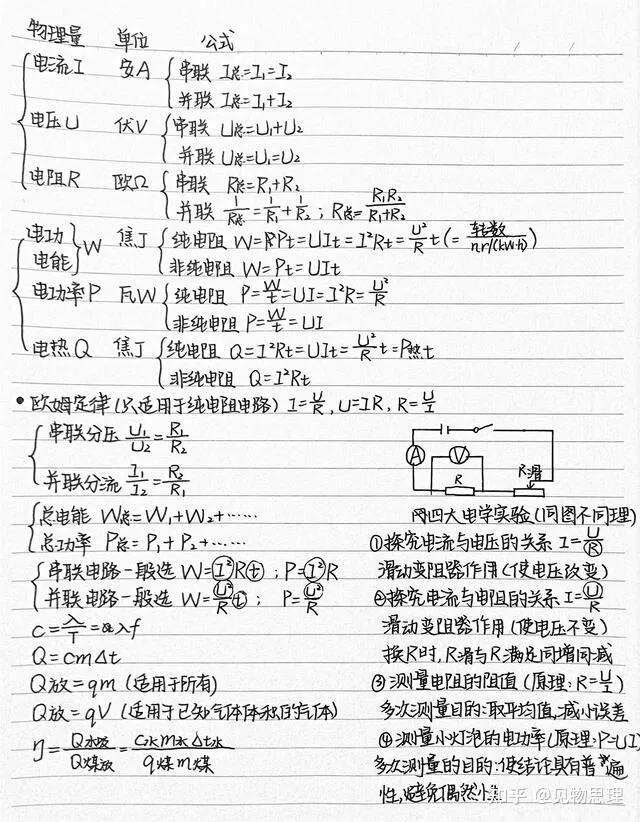 物理量 单位 公式
电流I 安A 串联 I总=I₁=I₂
并联 I总=I₁+I₂
电压U 伏V 串联 U总=U₁+U₂
并联 U总=U₁=U₂
电阻R 欧Ω 串联 R总=R₁+R₂
并联 1/R总=1/R₁+1/R₂；R总=R₁R₂/(R₁+R₂)
电功 电能 W 焦J 纯电阻 W=Pt=UIt=I²Rt=U²/R t(=转数/nr/(kW·h))
非纯电阻 W=Pt=UIt
电功率P 瓦W 纯电阻 P=W/t=UI=I²R=U²/R
非纯电阻 P=W/t=UI
电热Q 焦J 纯电阻 Q=I²Rt=UIt=U²/R t=P热t
非纯电阻 Q=I²Rt
•欧姆定律(只适用于纯电阻电路) I=U/R, U=IR, R=U/I
串联分压 U₁/U₂=R₁/R₂
并联分流 I₁/I₂=R₂/R₁
总电能 W总=W₁+W₂+……
总功率 P总=P₁+P₂+……
串联电路一般选 W=I²Rt；P=I²R
并联电路一般选 W=U²/R t；P=U²/R
c=λ/T=λf
Q=cmΔt
Q放=qm (适用于所有)
Q放=qV (适用于已知气体体积的气体)
η=Q水吸/Q煤放=C水m水Δt水/q煤m煤
A V R R滑
四大电学实验(同图不同理)
①探究电流与电压的关系 I=U/R
滑动变阻器作用(使电压改变)
②探究电流与电阻的关系 I=U/R
滑动变阻器作用(使电压不变)
换R时,R滑与R满足同增同减
③测量电阻的阻值(原理:R=U/I)
多次测量目的:取平均值,减小误差
④测量小灯泡的电功率(原理:P=UI)
多次测量的目的:使结论具有普遍
性,避免偶然性
知乎 @见物思理